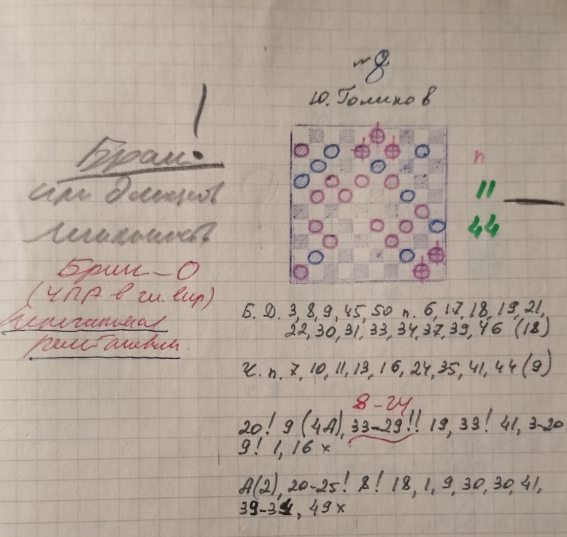 № 8
Ю. Голиков
!
Брак!
п
11
44
Брак – О
(ЧПА в гл. вар)
Б. Д. 3, 8, 9, 45, 50 п. 6, 17, 18, 19, 21,
22, 30, 31, 33, 34, 37, 39, 46 (18)
Ч. п. 7, 10, 11, 13, 16, 24, 35, 41, 44 (9)
8-24
20! 9 (4A), 33-29!! 19, 33! 41, 3-20
9! 1, 16 ×
A(2), 20-25! 8! 18, 1, 9, 30, 30, 41,
39-34, 49 ×